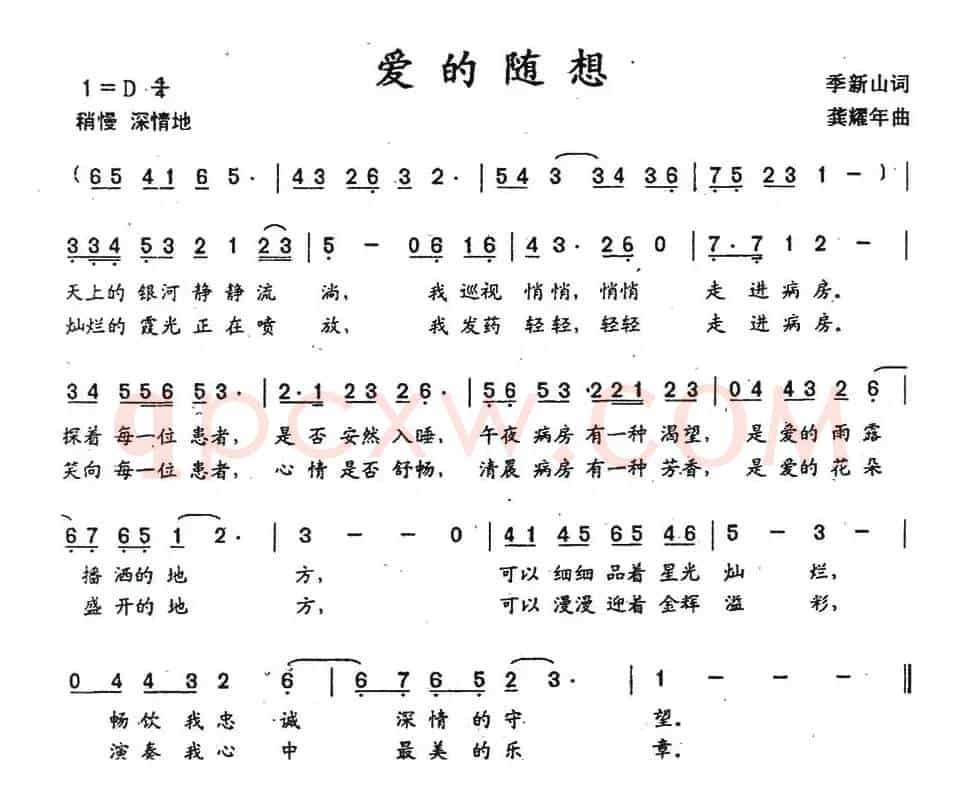 爱的随想
1=D 4/4
季新山词
稍慢 深情地
龚耀年曲
(65 41 6 5· | 43 26 3 2· | 54 3 34 36 | 75 23 1 －)|
334 53 2 1 23 | 5 － 06 16 | 43· 26 0 | 7·7 1 2 － |
天上的 银河 静 静 流 淌, 我 巡视 悄悄,悄悄 走 进 病 房。
灿烂的 霞光 正 在 喷 放, 我 发药 轻轻,轻轻 走 进 病 房。
34 556 53· | 2·1 23 26· | 56 53· 221 23 | 04 43 2 6 |
探着 每一位 患者, 是 否 安然 入睡, 午夜 病房 有一种 渴望, 是 爱的 雨 露
笑向 每一位 患者, 心 情 是否 舒畅, 清晨 病房 有一种 芳香, 是 爱的 花 朵
67 65 1 2· | 3 － － 0 | 41 45 65 46 | 5 － 3 － |
播 洒的 地 方, 可以 细细 品着 星光 灿 烂,
盛 开的 地 方, 可以 漫漫 迎着 金辉 溢 彩,
0 4 4 3 2 6 | 6 7 6 5 2 3· | 1 － － － ‖
畅 饮 我 忠 诚 深 情 的 守 望。
演 奏 我 心 中 最 美 的 乐 章。
qpcxw.COM